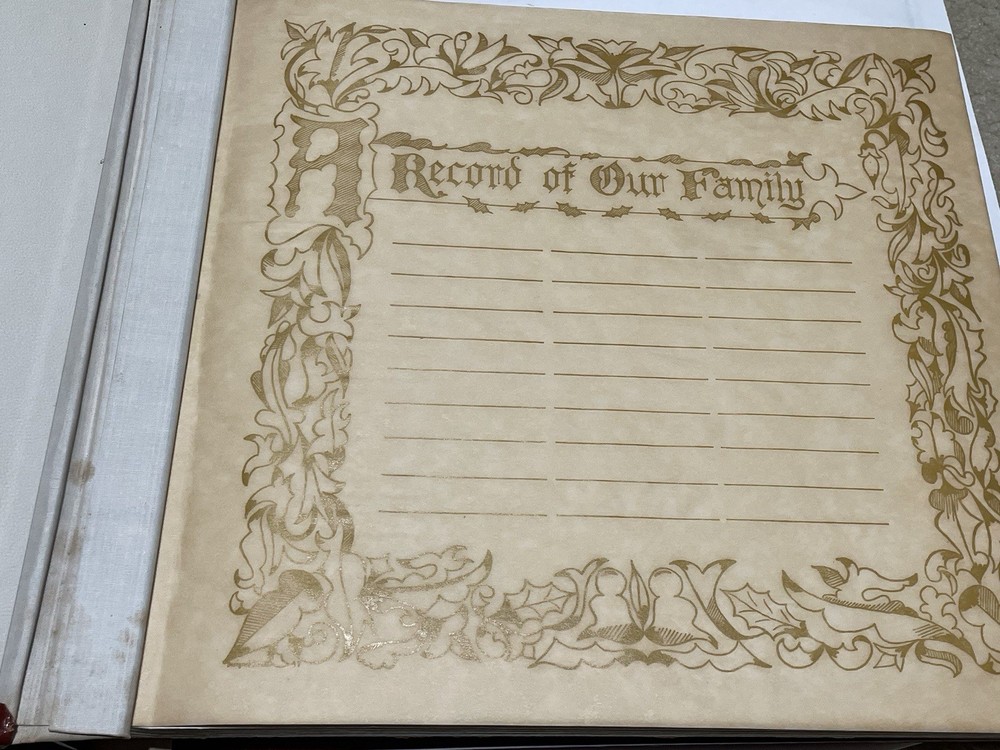 A Record of Our Family